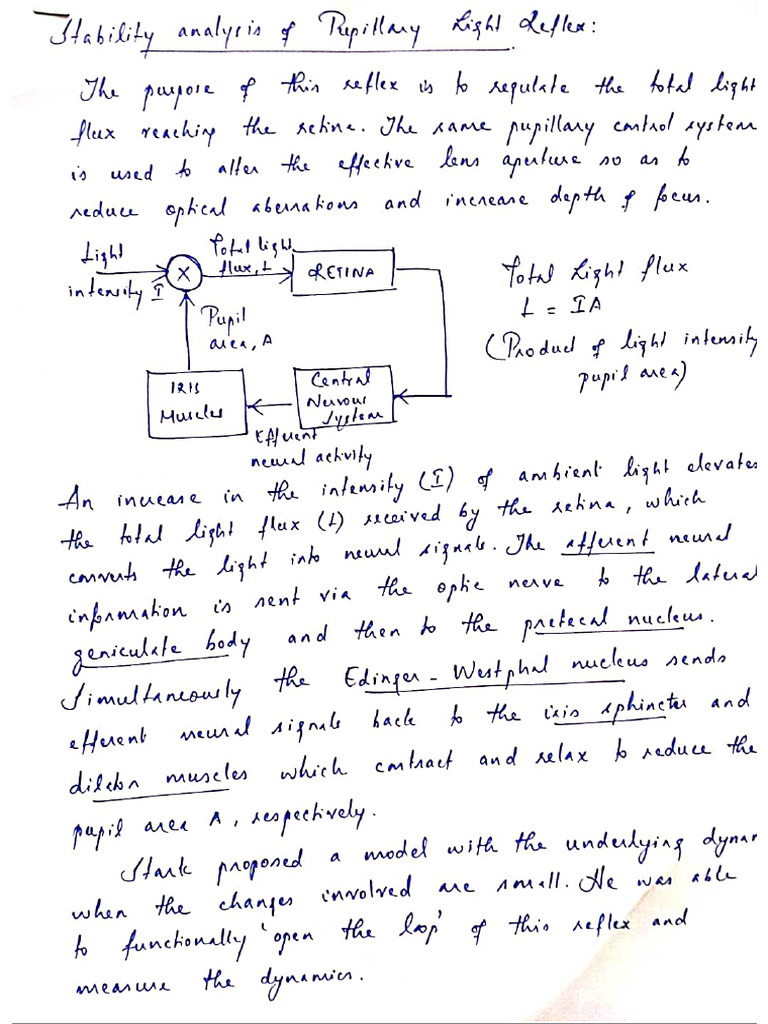 Stability analysis of Pupillary Light Reflex:
The purpose of this reflex is to regulate the total light
flux reaching the retina. The same pupillary control system
is used to alter the effective lens aperture so as to
reduce optical aberrations and increase depth of focus.
Light
intensity I
X
Total light
flux, L
RETINA
Pupil
area, A
IRIS
Muscles
Central
Nervous
System
Efferent
neural activity
Total Light flux
L = IA
(Product of light intensity
pupil area)
An increase in the intensity (I) of ambient light elevates
the total light flux (L) received by the retina, which
converts the light into neural signals. The afferent neural
information is sent via the optic nerve to the lateral
geniculate body and then to the pretecal nucleus.
Simultaneously the Edinger-Westphal nucleus sends
efferent neural signals back to the iris sphincter and
dilator muscles which contract and relax to reduce the
pupil area A, respectively.
Stark proposed a model with the underlying dynam
when the changes involved are small. He was able
to functionally 'open the loop' of this reflex and
measure the dynamics.